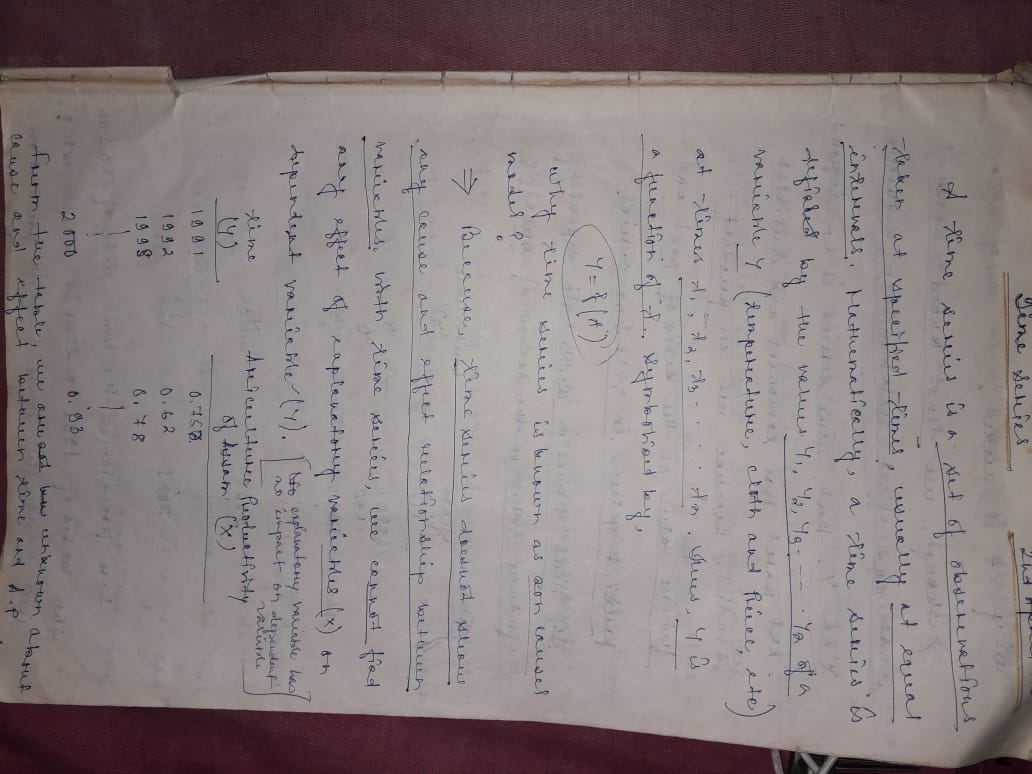 Time Series
A time series is a set of observations
taken at specified times, usually at equal
intervals. Mathematically, a time series is
defined by the values Y1, Y2, Y3 --- . Yn of a
variable Y (temperature, cloth and Price, etc)
at times t1, t2, t3 . . . . tn . Thus, Y is
a function of t. Symbolical by,
Y = f(t)
Why time series is known as non causes
model ?
⇒ Because, time series doesnot show
any cause and effect relationship between
variables. With time series, we cannot find
any effect of explanatory variables (x) on
dependent variable (Y). [ explanatory variable has
no impact on dependent
variable ]
time Agriculture Productivity
(Y) of Assam (X)
1991 0.75
1992 0.62
1993 0.78
2000 0.93
from the table, we are unknown about
cause and effect between time and A.P